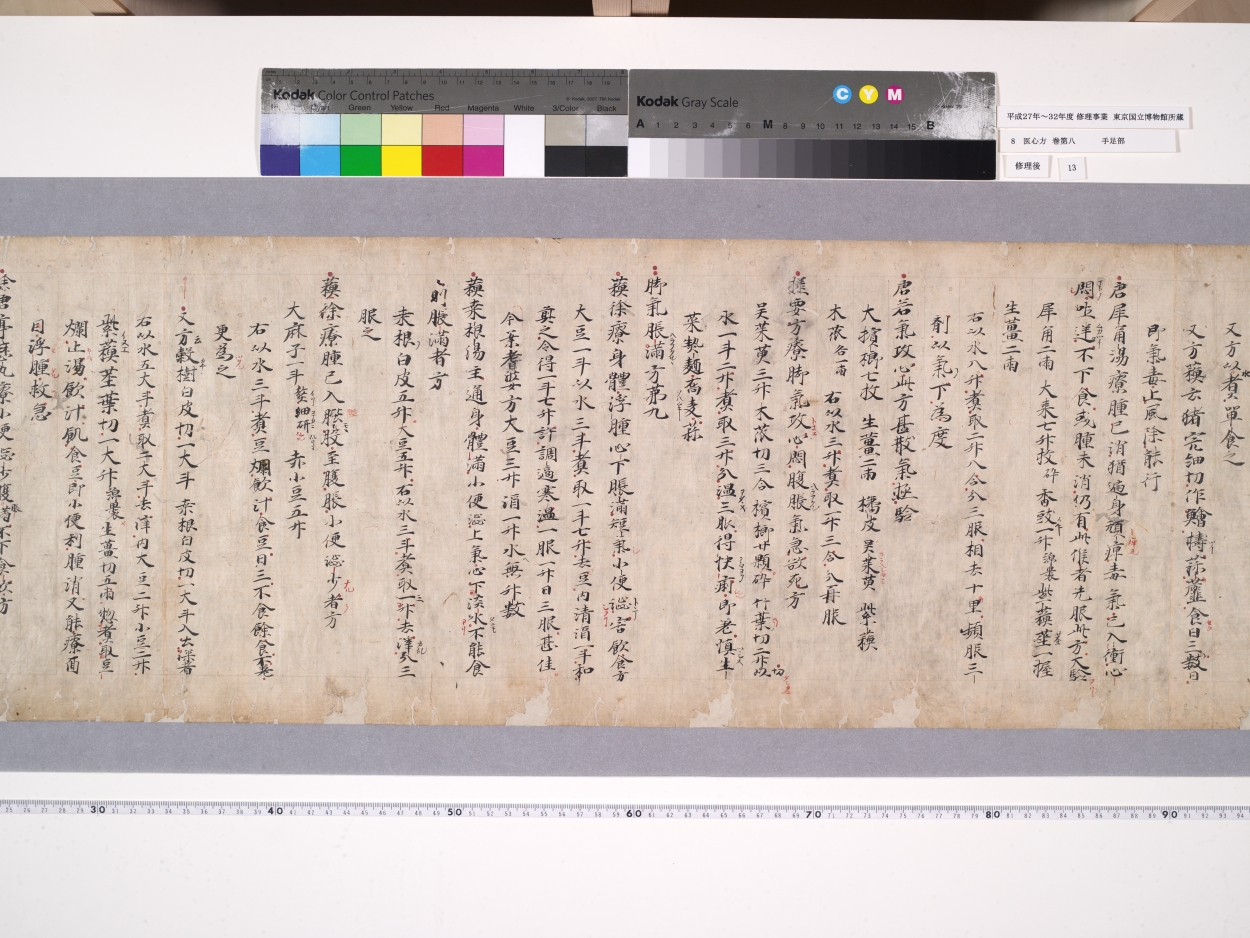 Kodak Color Control Patches
Green Yellow Red Magenta White 3/Color Black
Kodak Gray Scale
C Y M
A 1 2 3 4 5 6 M 8 9 10 11 12 13 14 15 B
平成27年～32年度 修理事業 東京国立博物館所蔵
8 医心方 巻第八 手足部
修理後 13
又方以煮軍食之
又方蘓云猪宍細切作鱠擣蒜韲食日三数日
即氣毒止風除能行
唐犀角湯療腫已消猶遍身頑痺毒氣已入衝心
悶吐逆不下食或腫未消仍有此候者先服此方大驗
犀角二兩 大棗七枚碎 香豉一升綿裹 紫蘓莖一握
生薑二兩
右以水八升煮取二升八合分三服相去十里頻服三
剤以氣下為度
唐若氣攻心此方甚散氣極驗
大檳榔七枚 生薑二兩 橘皮 吴茱萸 紫蘓
木瓜各一兩 右以水三升煮取一升三合分再服
撮要方療脚氣攻心悶腹脹氣急欲死方
吴茱萸三升 木瓜切三合 檳榔廿顆碎 竹葉切二升以
水一斗二升煮取三升分温三服得快痢即差慎生
菜熱麺喬麦蒜
脚氣脹満方第九
蘓徐療身體浮腫心下脹満短氣小便澁害飲食方
大豆一斗以水三斗煮取一斗七升去豆内清酒一斗和
煎之令得一斗七升許調適寒温一服一升日三服甚佳
今案耆婆方大豆三升酒一升水無升数
蘓桒根湯主通身體満小便澁上氣心下淡水不能食
則脹満者方
桒根白皮五升大豆五升右以水二斗煮取一斗去滓分三
服之
蘓徐療腫已入股至腹脹小便澁少者方
大麻子一斗熬細研 赤小豆五升
右以水三斗煮豆爛飲汁食豆日三不食餘食盡
更為之
又方穀樹白皮切一大斗 桒根白皮切一大斗入土深者
右以水五大斗煮取一大斗去滓内大豆二升小豆二升
熟蘓莖葉切一大升綿裹生薑切五兩惣煮取豆
爛止渴飲汁飢食豆即小便利腫消又能療面
目浮腫救急